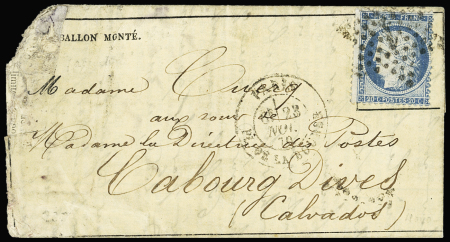 BALLON MONTÉ.
Madame
aux soins de
Madame la Directrice des Postes
Cabourg Dives
(Calvados)
PARIS
23
NOV.
70
PL. DE LA BOURSE
FRANC
20 C POSTES 20 C